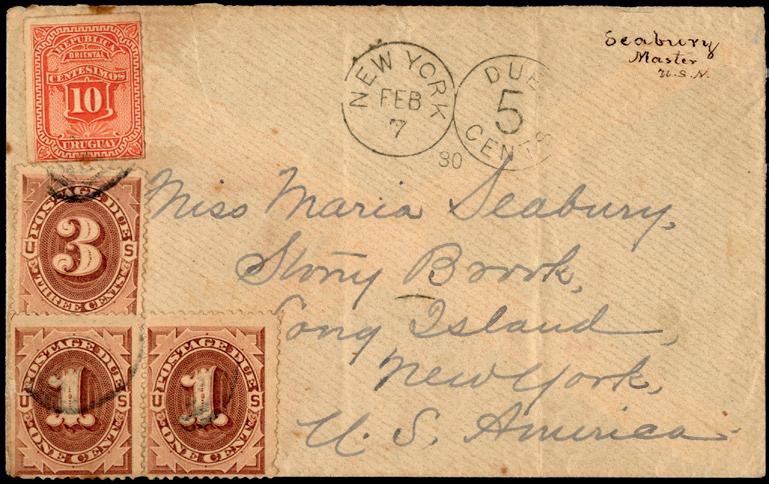 REPUBLICA
ORIENTAL
CENTESIMOS
10
URUGUAY
NEW YORK
FEB
7
DUE
5
CENTS
80
Seabury
Master
U.S.N.
POSTAGE DUE
U 3 S
THREE CENTS
Miss Maria Seabury,
Stony Brook,
Long Island,
New York,
U. S. America.
POSTAGE DUE
U 1 S
ONE CENT
POSTAGE DUE
U 1 S
ONE CENT